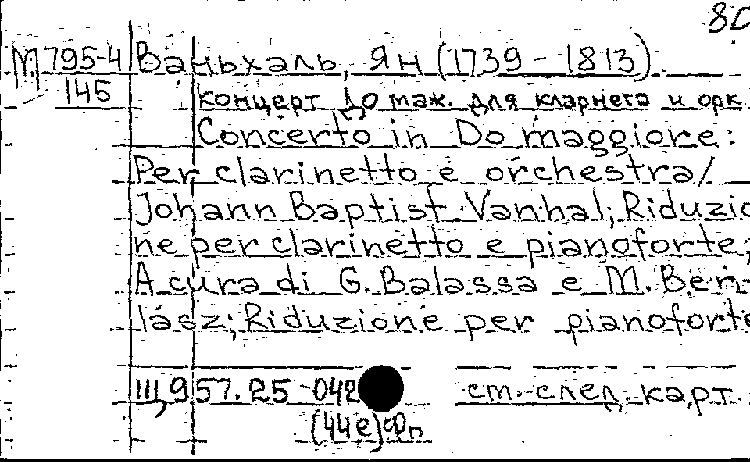 80
М 795-4 Ваньхаль, Ян (1739 - 1813).
145 концерт До маж. для кларнета и орк
Concerto in Do maggiore:
Per clarinetto e orchestra/
Johann Baptist Vanhal; Riduzio
ne per clarinetto e pianoforte;
A cura di G. Balassa e M. Ber-
lász; Riduzione per pianoforte
Ш,957.25-042 см. след. карт.
(44е)